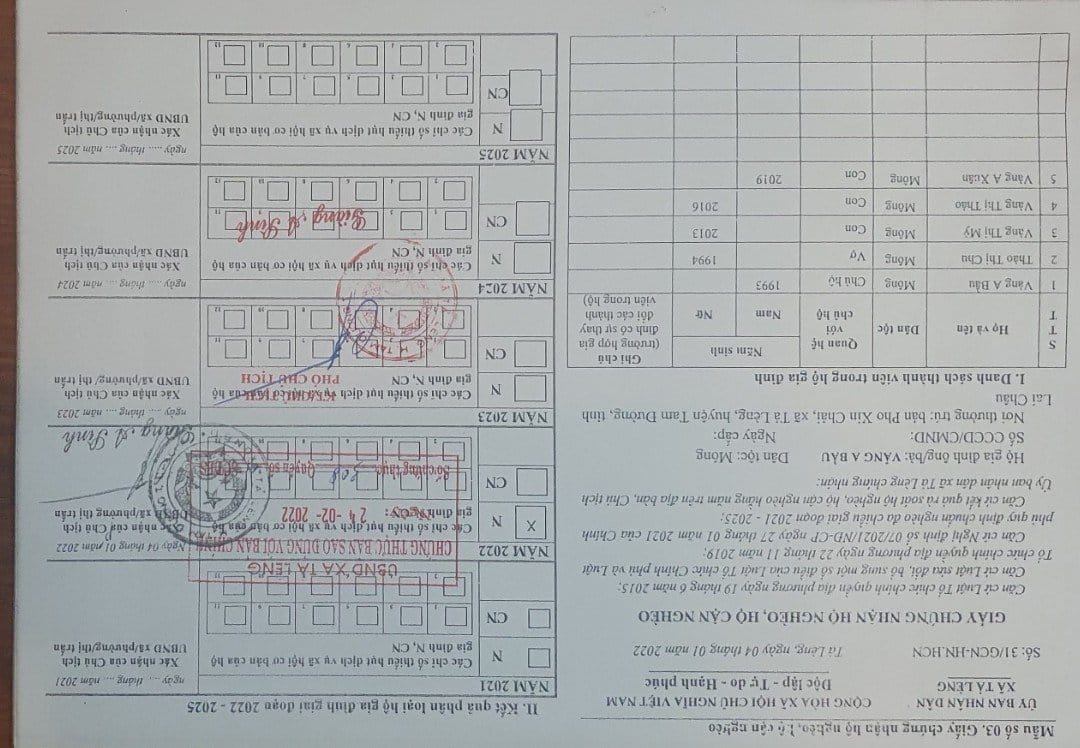 Mẫu số 03. Giấy chứng nhận hộ nghèo, hộ cận nghèo
ỦY BAN NHÂN DÂN
XÃ TẢ LÈNG
CỘNG HÒA XÃ HỘI CHỦ NGHĨA VIỆT NAM
Độc lập - Tự do - Hạnh phúc
Số: 31/GCN-HN.HCN
Tả Lèng, ngày 04 tháng 01 năm 2022
GIẤY CHỨNG NHẬN HỘ NGHÈO, HỘ CẬN NGHÈO
Căn cứ Luật Tổ chức chính quyền địa phương ngày 19 tháng 6 năm 2015;
Căn cứ Luật sửa đổi, bổ sung một số điều của Luật Tổ chức Chính phủ và Luật
Tổ chức chính quyền địa phương ngày 22 tháng 11 năm 2019;
Căn cứ Nghị định số 07/2021/NĐ-CP ngày 27 tháng 01 năm 2021 của Chính
phủ quy định chuẩn nghèo đa chiều giai đoạn 2021 - 2025;
Căn cứ kết quả rà soát hộ nghèo, hộ cận nghèo hàng năm trên địa bàn, Chủ tịch
Ủy ban nhân dân xã Tả Lèng chứng nhận:
Hộ gia đình ông/bà: VÀNG A BẦU Dân tộc: Mông
Số CCCD/CMND: Ngày cấp:
Nơi thường trú: bản Pho Xin Chải, xã Tả Lèng, huyện Tam Đường, tỉnh
Lai Châu
I. Danh sách thành viên trong hộ gia đình
STT Họ và tên Dân tộc Quan hệ với chủ hộ Năm sinh Nam Nữ Ghi chú (trường hợp gia đình có sự thay đổi các thành viên trong hộ)
1 Vàng A Bầu Mông Chủ hộ 1993
2 Thào Thị Chu Mông Vợ 1994
3 Vàng Thị Mỷ Mông Con 2013
4 Vàng Thị Thảo Mông Con 2016
5 Vàng A Xuân Mông Con 2019
II. Kết quả phân loại hộ gia đình giai đoạn 2022 - 2025
NĂM 2021
N
CN
Các chỉ số thiếu hụt dịch vụ xã hội cơ bản của hộ
gia đình N, CN
ngày .... tháng .... năm 2021
Xác nhận của Chủ tịch
UBND xã/phường/thị trấn
NĂM 2022
X N
CN
Các chỉ số thiếu hụt dịch vụ xã hội cơ bản của hộ
gia đình N, CN
Ngày 04 tháng 01 năm 2022
Xác nhận của Chủ tịch
UBND xã/phường/thị trấn
UBND XÃ TẢ LÈNG
CHỨNG THỰC BẢN SAO ĐÚNG VỚI BẢN CHÍNH
Ngày: 24-02-2022
Số chứng thực: 308 Quyển số:
Giàng A Sinh
NĂM 2023
N
CN
Các chỉ số thiếu hụt dịch vụ xã hội cơ bản của hộ
gia đình N, CN
ngày .... tháng .... năm 2023
Xác nhận của Chủ tịch
UBND xã/phường/thị trấn
KT. CHỦ TỊCH
PHÓ CHỦ TỊCH
NĂM 2024
N
CN
Các chỉ số thiếu hụt dịch vụ xã hội cơ bản của hộ
gia đình N, CN
ngày .... tháng .... năm 2024
Xác nhận của Chủ tịch
UBND xã/phường/thị trấn
Giàng A Sinh
NĂM 2025
N
CN
Các chỉ số thiếu hụt dịch vụ xã hội cơ bản của hộ
gia đình N, CN
ngày .... tháng .... năm 2025
Xác nhận của Chủ tịch
UBND xã/phường/thị trấn